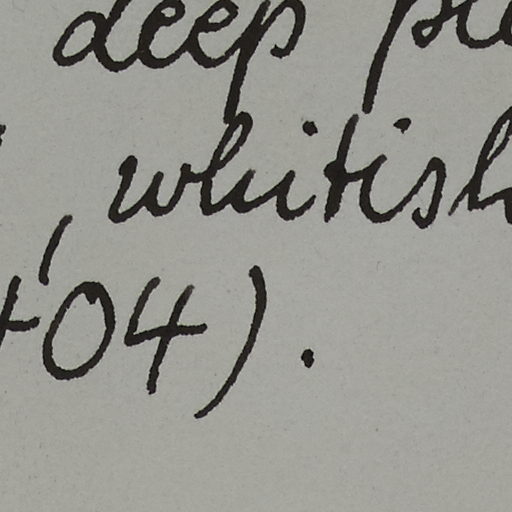 deep
, whitish
04).